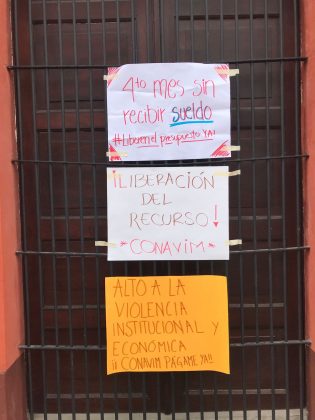 4to mes sin
recibir sueldo
#Liberen el presupuesto YA!
¡LIBERACIÓN
DEL
RECURSO!
*CONAVIM*
ALTO A LA
VIOLENCIA
INSTITUCIONAL Y
ECONÓMICA
¡¡ CONAVIM PÁGAME YA!!